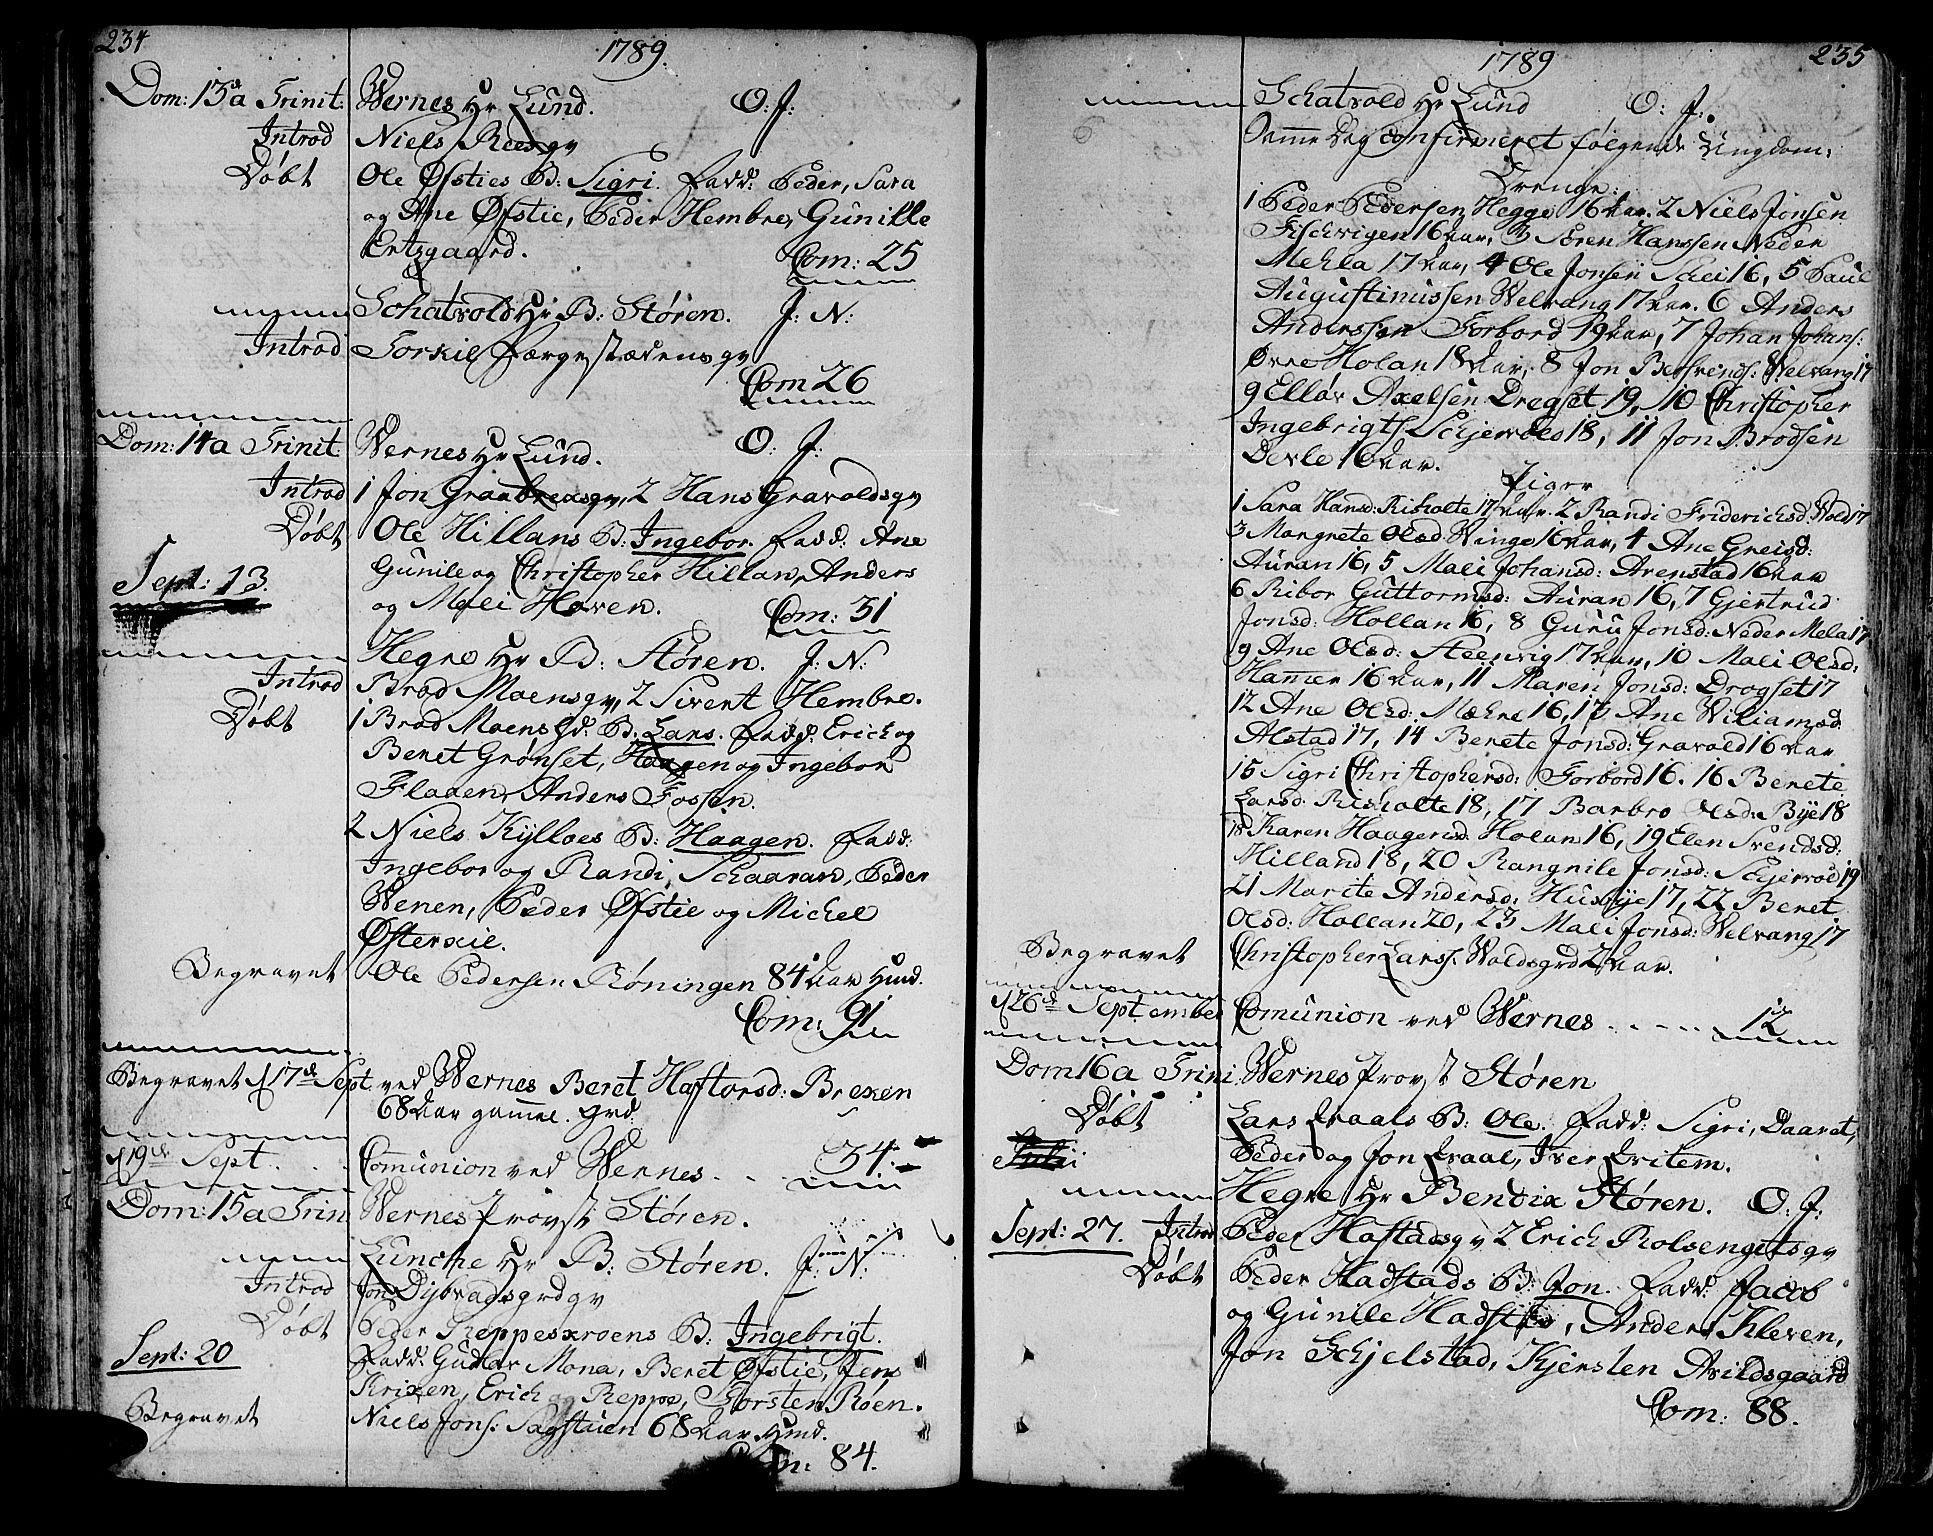 234
1789.
Dom: 13 a Trinit: Wernes Hr Lund. O: J:
Introd Niels Reesgv
Døbt Ole Øfsties B: Sigri. Fadd: Peder, Sara
og Ane Øfstie, Peder Hembre, Gunille
Ertzgaard. Com: 25
Schatvold Hr B: Støren. J: N:
Introd Torkil Færgestædensgv
Com 26
Dom: 14 a Trinit Wernes Hr Lund. O: J:
Introd 1 Jon Granbrexsgv, 2 Hans Gravoldsgv
Døbt Ole Hillans B: Ingebor. Fadd: Ane
Gunile og Christopher Hillan, Anders
Sept: 13.
og Mali Haven. Com: 31
Hegre Hr B: Støren. J: N:
Introd Brod Moensgv, 2 Sivert Hembre.
Døbt 1 Brod Moens B: Lars. Fadd: Erich og
Beret Grønset, Haagen og Ingebor
Flaaen, Anders Fossen.
2 Niels Kylloes B: Haagen. Fadd:
Ingebor og Randi Schaaran, Peder
Wenen, Peder Øfstie og Michel
Øfterxie.
Begravet Ole Pedersen Røningen 84 Aar Hmd.
Com: 91
Begravet d 17de Sept ved Wernes Beret Haftorsd: Brexen
68 Aar gamel. grd
d 19de Sept. Comunion ved Wernes . . . 34.
Dom: 15 a Trin Wernes Provst Støren.
Lunche Hr B: Støren. J: N:
Introd Jon Dybvadsgrdgv
Døbt Peder Reppesxroens B: Ingebrigt.
Sept: 20
Fadd: Gudlar Mona, Beret Øfstie, Jens
Krixen, Erich og Reppe, Torsten Røen.
Begravet Niels Jons: Sagstuen 68 Aar Hmd.
Com: 84.
1789
235
Schatvold Hr Lund O: J:
Samme Dag confirmeret følgende Ungdom:
Drenge:
1 Peder Pedersen Hegge 16 Aar. 2 Niels Jonsen
Fischvigen 16 Aar, 3 Søren Hanssen Neder
Mehla 17 Aar, 4 Ole Jonsen Schei 16, 5 Paul
Augustinussen Welvang 17 Aar. 6 Anders
Anderssen Forbord 19 Aar, 7 Johan Johans:
Øvre Holan 18 Aar, 8 Jon Bersvends: Welvang 17
9 Ellør Axelsen Dregset 19, 10 Christopher
Ingebrigts Schjervoes 18, 11 Jon Brodsen
Devle 16 Aar.
Piger
1 Sara Hansd: Risholte 17 Aar. 2 Randi Friderichsd: Wold 17
3 Margrete Olsd Winge 16 Aar, 4 Ane Greisd:
Auran 16, 5 Mali Johansd: Arenstad 16 Aar
6 Ribor Guttormsd: Auran 16, 7 Gjertrud
Jonsd: Hollan 16, 8 Guru Jonsd: Neder Mela 17
9 Ane Olsd: Steenvig 17 Aar, 10 Mali Olsd:
Hammer 16 Aar, 11 Maren Jonsd: Drogset 17
12 Ane Olsd: Mæhre 16, 13 Ane Wiliamsd
Alstad 17, 14 Berete Jonsd: Gravold 16 Aar
15 Sigri Christophersd: Forbord 16. 16 Berete
Larsd: Risholte 18, 17 Barbro Olsd: Bye 18
18 Karen Haagensd: Holan 16, 19 Elen Svendsd:
Hilland 18, 20 Rangnile Jonsd: Schjervod 19
21 Marite Andersd: Husbye 17, 22 Beret
Olsd: Hollan 20, 23 Mali Jonsd: Welvang 17
Begravet Christopher Larss: Woldsgrd 2 Aar.
d 26de September Comunion ved Wernes . . . . . . 12
Dom 16 a Trini. Wernes Provst Støren
Døbt Lars Fraals B: Ole. Fadd: Sigri, Daaret,
Peder og Jon Fraal, Iver Evitem.
Hegre Hr Bendix Støren. O: J:
Sept: 27. Introd Peder Hafstadsgv 2 Erich Rolsengetsgv
Døbt Peder Hadstads B: Jon. Fadd: Jacob
og Gunille Hadstad, Anders Kleven,
Jon Schjelstad, Kjersten Avildsgaard
Com: 88.